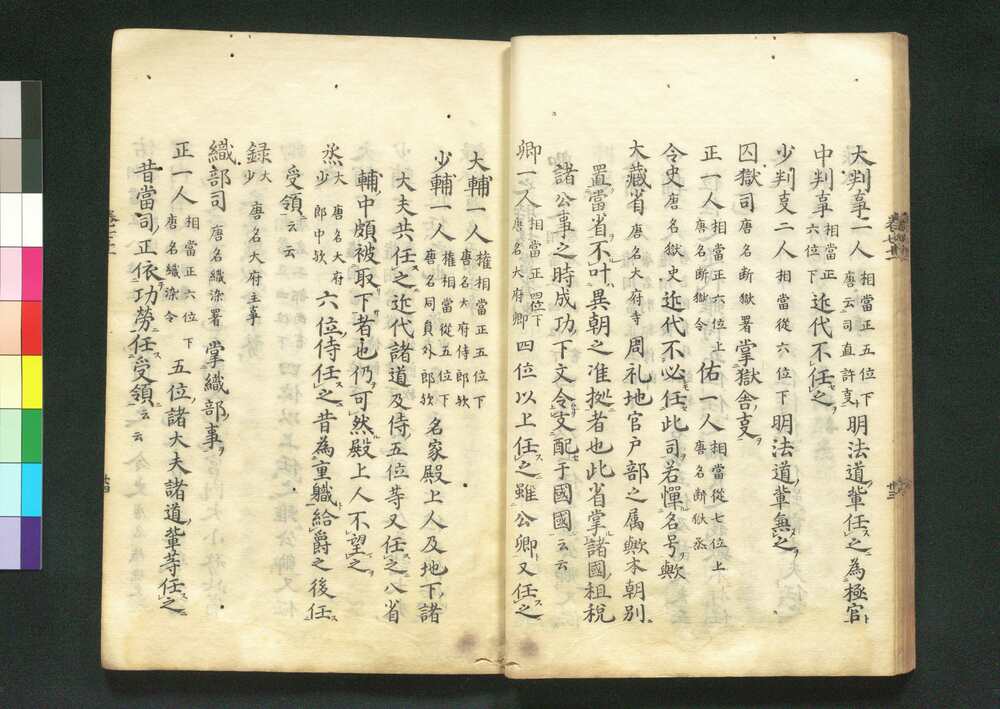 大判事一人 相當正五位下 唐云司直許事 明法道輩任之為極官
中判事 相當正六位下 近代不任之
少判支二人 相當從六位下 明法道輩無之
囚獄司 唐名断獄署 掌獄舎支
正一人 相當正六位上 唐名断獄令 佑一人 相當從七位上 唐名断獄丞
令史 唐名獄史 近代不必任此司若憚名号歟
大藏省 唐名大府寺 周礼地官戸部之属歟本朝別
置當省不叶異朝之准挍者也此省掌諸國租税
諸公事之時成功下文令支配于國國云云
卿一人 相當正四位下 唐名大府卿 四位以上任之雖公卿又任之
大輔一人 權相當正五位下 唐名大府侍郎欤
少輔一人 權相當從五位下 唐名同員外郎欤 名家殿上人及地下諸
大夫共任之近代諸道及侍五位等又任之八省
輔中頗被取下者也仍可然殿上人不望之
丞 大少 唐名大府郎中欤 六位侍任之昔為重職給爵之後任
受領云云
録 大少 唐名大府主事
織部司 唐名織染署 掌織部事
正一人 相當正六位下 唐名織染令 五位諸大夫諸道輩等任之
昔當司正依功勞任受領云云